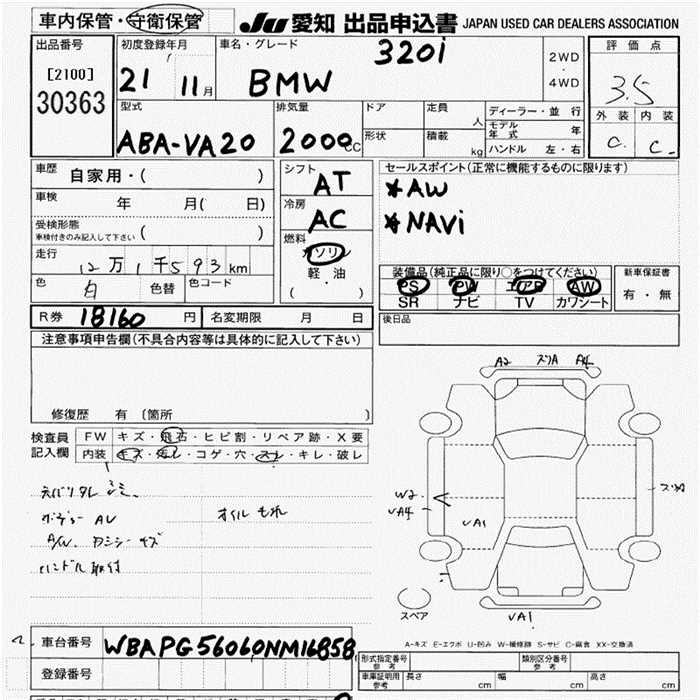 車内保管・守衛保管
JU 愛知 出品申込書 JAPAN USED CAR DEALERS ASSOCIATION
出品番号 初度登録年月 車名・グレード 320i 評価点
[2100] 21 11月 BMW 2WD ・ 4WD 3.5
30363
型式 排気量 ドア 定員 人 ディーラー・並行 外装 内装
モデル年式 年
ABA-VA20 2000cc 形状 積載 kg ハンドル 左・右 C. C.
車歴 自家用・( ) シフト AT セールスポイント(正常に機能するものに限ります)
車検 年 月( 日) 冷房 AC *AW
受検形態 *NAVi
車検付きのみ記入して下さい ( ) 燃料
走行 12万1千593km ガソリン 装備品(純正品に限り〇をつけてください) 新車保証書
色 白 色替 色コード 軽・油 PS PW エアB AW 有・無
( ) SR ナビ TV カワシート
R券 18160 円 名変期限 月 日 後日品
注意事項申告欄(不具合内容等は具体的に記入して下さい)
A2 ズリA A4
修復歴 有 [箇所 ]
検査員 FW キズ・飛石・ヒビ割・リペア跡・X要
記入欄 内装 キズ・汚レ・コゲ・穴・スレ・キレ・破レ
オイルもれ
W2
VA4
VA1
A/W
ハンドル
スペア VA1
A-キズ E-エクボ U-凹み W-補修跡 S-サビ C-腐食 XX-交換済
車台番号 WBAPG56060NM16858
登録番号
形式指定番号 参考 類別区分番号 参考
車庫証明用 参考 長さ cm 幅 cm 高さ cm